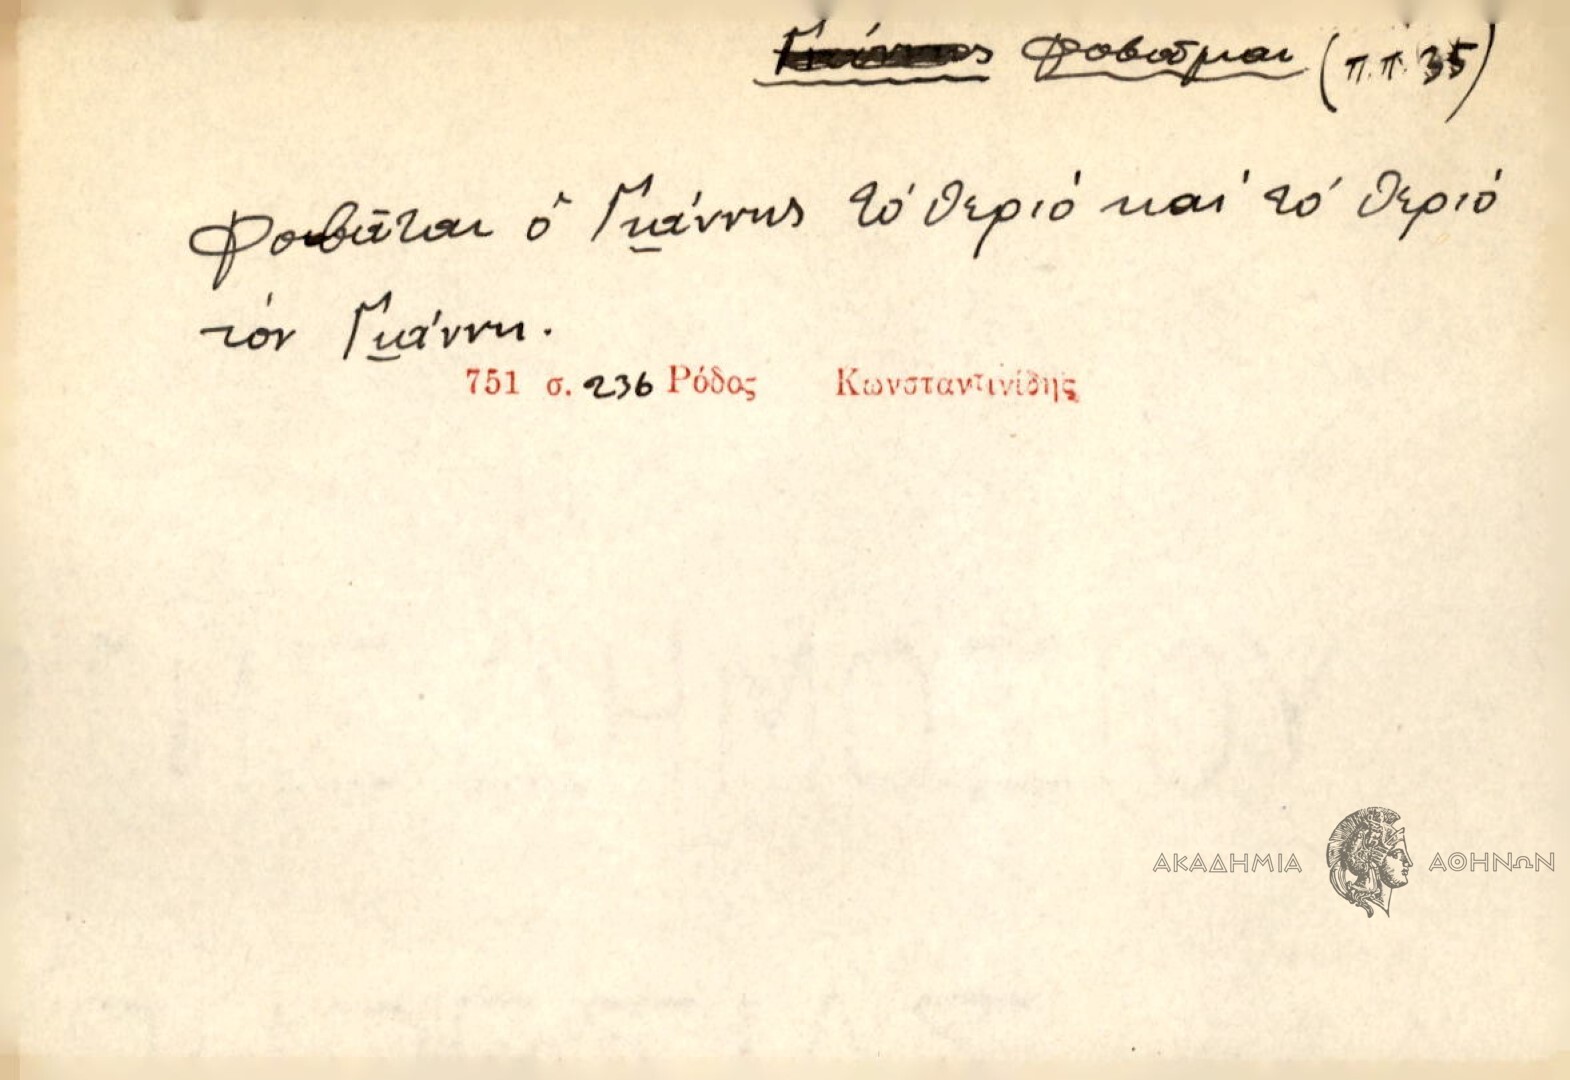 φοβοῦμαι (π.π. 35)
Φοβᾶται ὁ Γιάννης τό θεριό καί τό θεριό
τόν Γιάννη.
751 σ. 236 Ρόδος Κωνσταντινίδης
ΑΚΑΔΗΜΙΑ ΑΘΗΝΩΝ